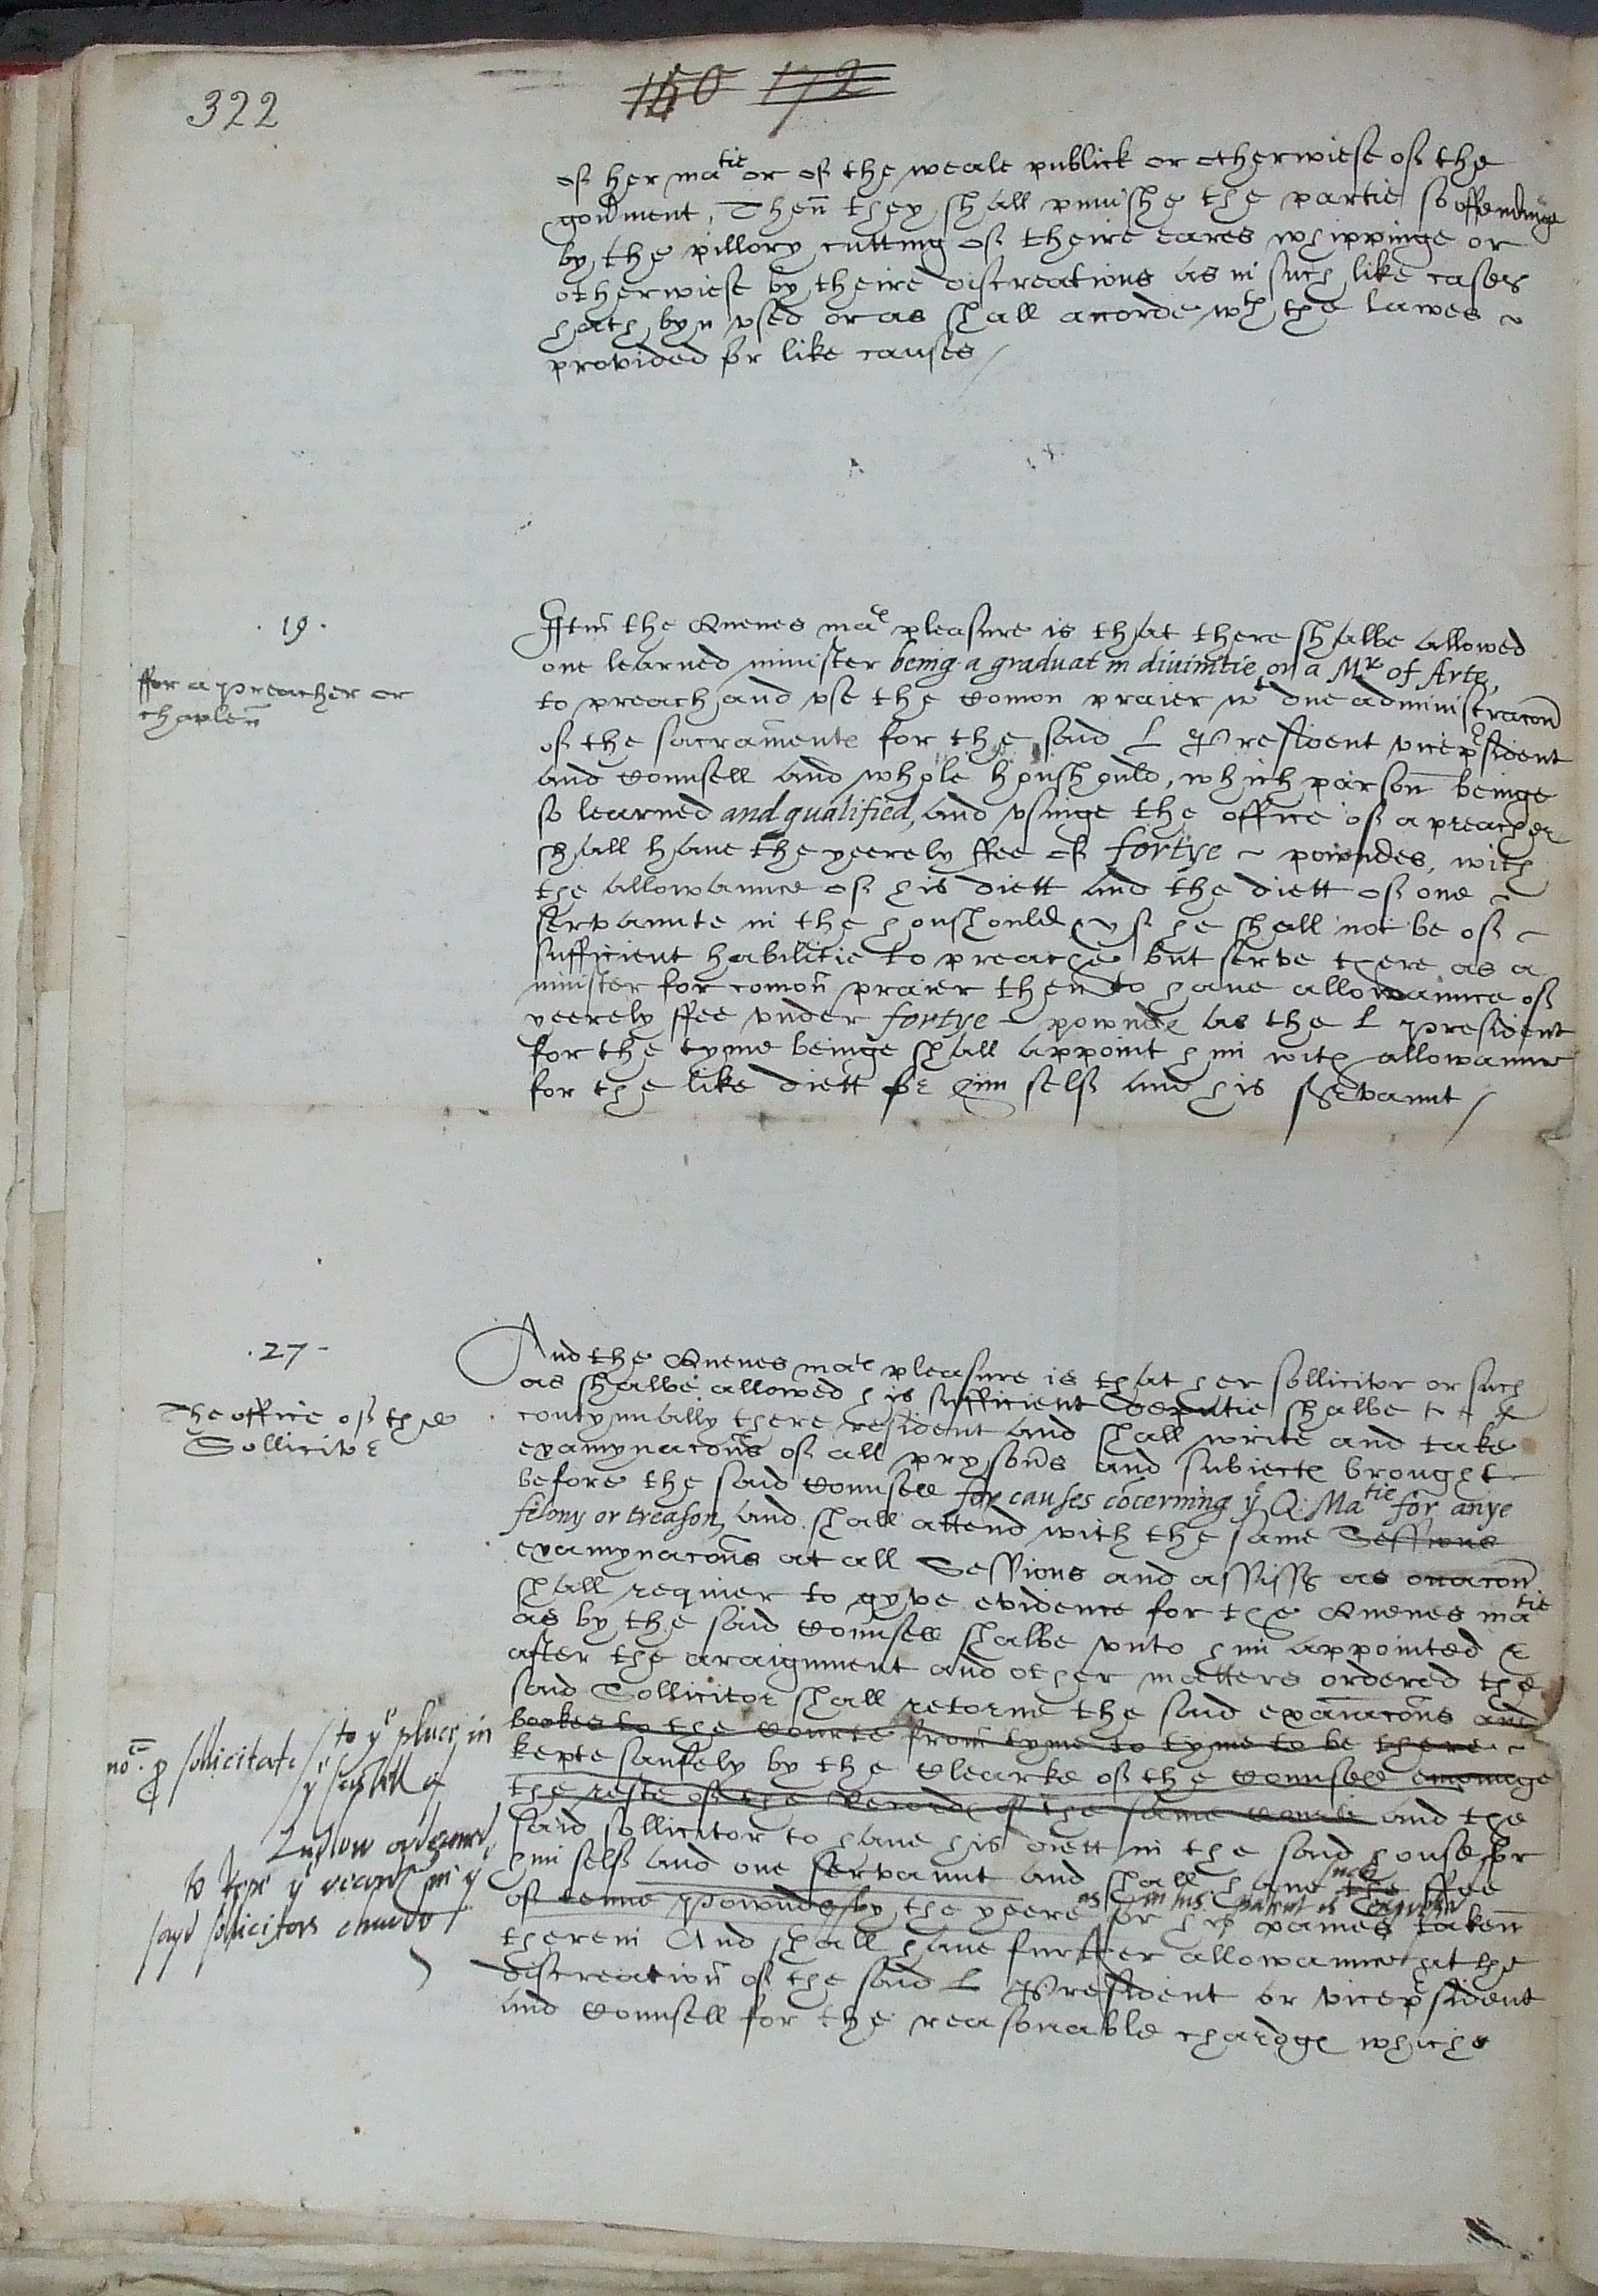 322
150 172
of her ma^tie or of the weale publick or otherwiese of the
gou̅ment, Then̅ they shall punishe the partie so offendinge
by the pillory cutting of theire eares whippinge or
otherwiese by theire discreations as in such like cases
hath byn vsed or as shall acorde w^th the lawes ~
provided for like causes /
. 19 .
ffor a preacher or
chaplen̅
Itm̅ the Quenes ma^te pleasure is that there shalbe allowed
one learned minister being a graduat in diuinitie or a M^r of Arte,
to preach and vse the Comon praier w^t due administracon̅
of the sacramente for the said L President vicep^rsident
and Counsell and whole houshould, which parson̅ beinge
so learned and qualified, and vsinge the office of a preacher
shall haue the yeerely ffee of fortye ~ powndes, with
the allowaunce of his diett and the diett of one ~
servaunte in the houshould, yf he shall not be of ~
sufficient habilitie to preache but serve there as a
minister for comon̅ praier then to haue allowaunce of
yeerely ffee vnder fortye ~ pownde as the L president
for the tyme beinge shall appoint him with allowaunce
for the like diett for him self and his servaunt /
. 27 -
The office of the
Sollicitor
And the Quenes ma^te pleasure is that her sollicitor or such
as shalbe allowed his sufficient Deputie shalbe
contynually there resident and shall write and take
examynacon̅s of all prysoners and subiecte brought
before the said Counsell for causes cōcerning y^e Q: Ma^tie for anye
felony or treason, and shall attend with the same Sessions
examynacon̅s at all Sessions and assisses as occacon̅
shall requier to gyve evidence for the Quenes ma^tie
as by the said Counsell shalbe vnto him appointed &
after the araignment and other matters ordered the
said Sollicitor shall retorne the said exaīacon̅s and
bookes to the Courte from tyme to tyme to be there ~
kepte saufely by the Clearke of the Counsell emonge
the reste of the Recorde of the same Courte and the
said sollicitor to haue his diett in the said house for
him self and one servaunt and shall haue the ffee
such
of tenne pownde by the yeere for his paines taken̅
as in his patent is expressed
therein And shall haue further allowaunce at the
discreation̅ of the said L President or vicep^rsident
and Counsell for the reasonable chardge whiche
no^te. p sollicitat / to y^e place in
y^e castell of
Ludlow
to y^e y^e
sayd sollicitors